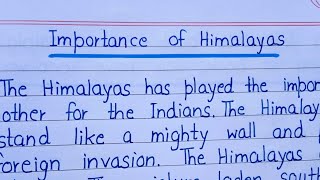 Importance of Himalayas
The Himalayas has played the impor
other for the Indians. The Himalay
stand like a mighty wall and
foreign invasion. The Himalayas